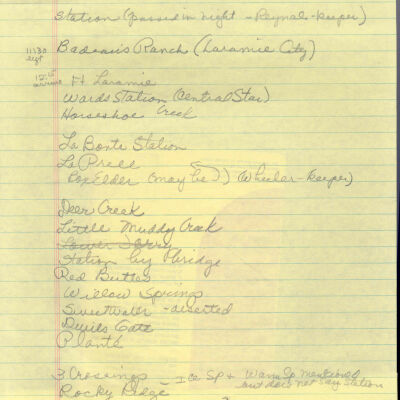 Station (passed in night - Reynal - keeper)
11:30 dept Badeau's Ranch (Laramie City)
12:15 arrive Ft Laramie
Wards Station (Central Star)
Horseshoe Creek
La Bonte Station
La Prele
BoxElder (may be?) (Wheeler - keeper)
Deer Creek
Little Muddy Creek
Lower Ferry
Station by Bridge
Red Buttes
Willow Springs
Sweetwater - deserted
Devils Gate
Plants
3 Crossings - Ice Sp + Warm Sp mentioned
but does not say station
Rocky Ridge